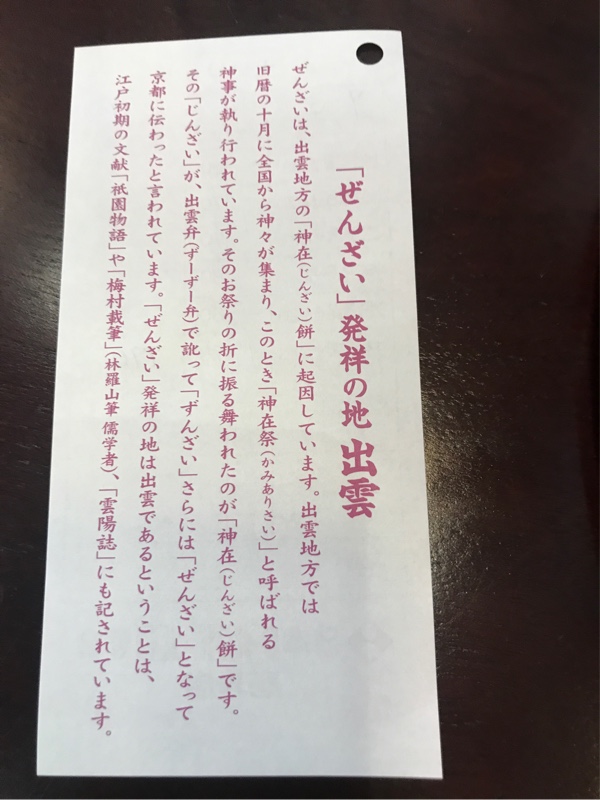 「ぜんざい」発祥の地 出雲
ぜんざいは、出雲地方の「神在(じんざい)餅」に起因しています。出雲地方では
旧暦の十月に全国から神々が集まり、このとき「神在祭(かみありさい)」と呼ばれる
神事が執り行われています。そのお祭りの折に振る舞われたのが「神在(じんざい)餅」です。
その「じんざい」が、出雲弁(ずーずー弁)で訛って「ずんざい」さらには「ぜんざい」となって
京都に伝わったと言われています。「ぜんざい」発祥の地は出雲であるということは、
江戸初期の文献「祇園物語」や「梅村載筆」(林羅山筆 儒学者)、「雲陽誌」にも記されています。